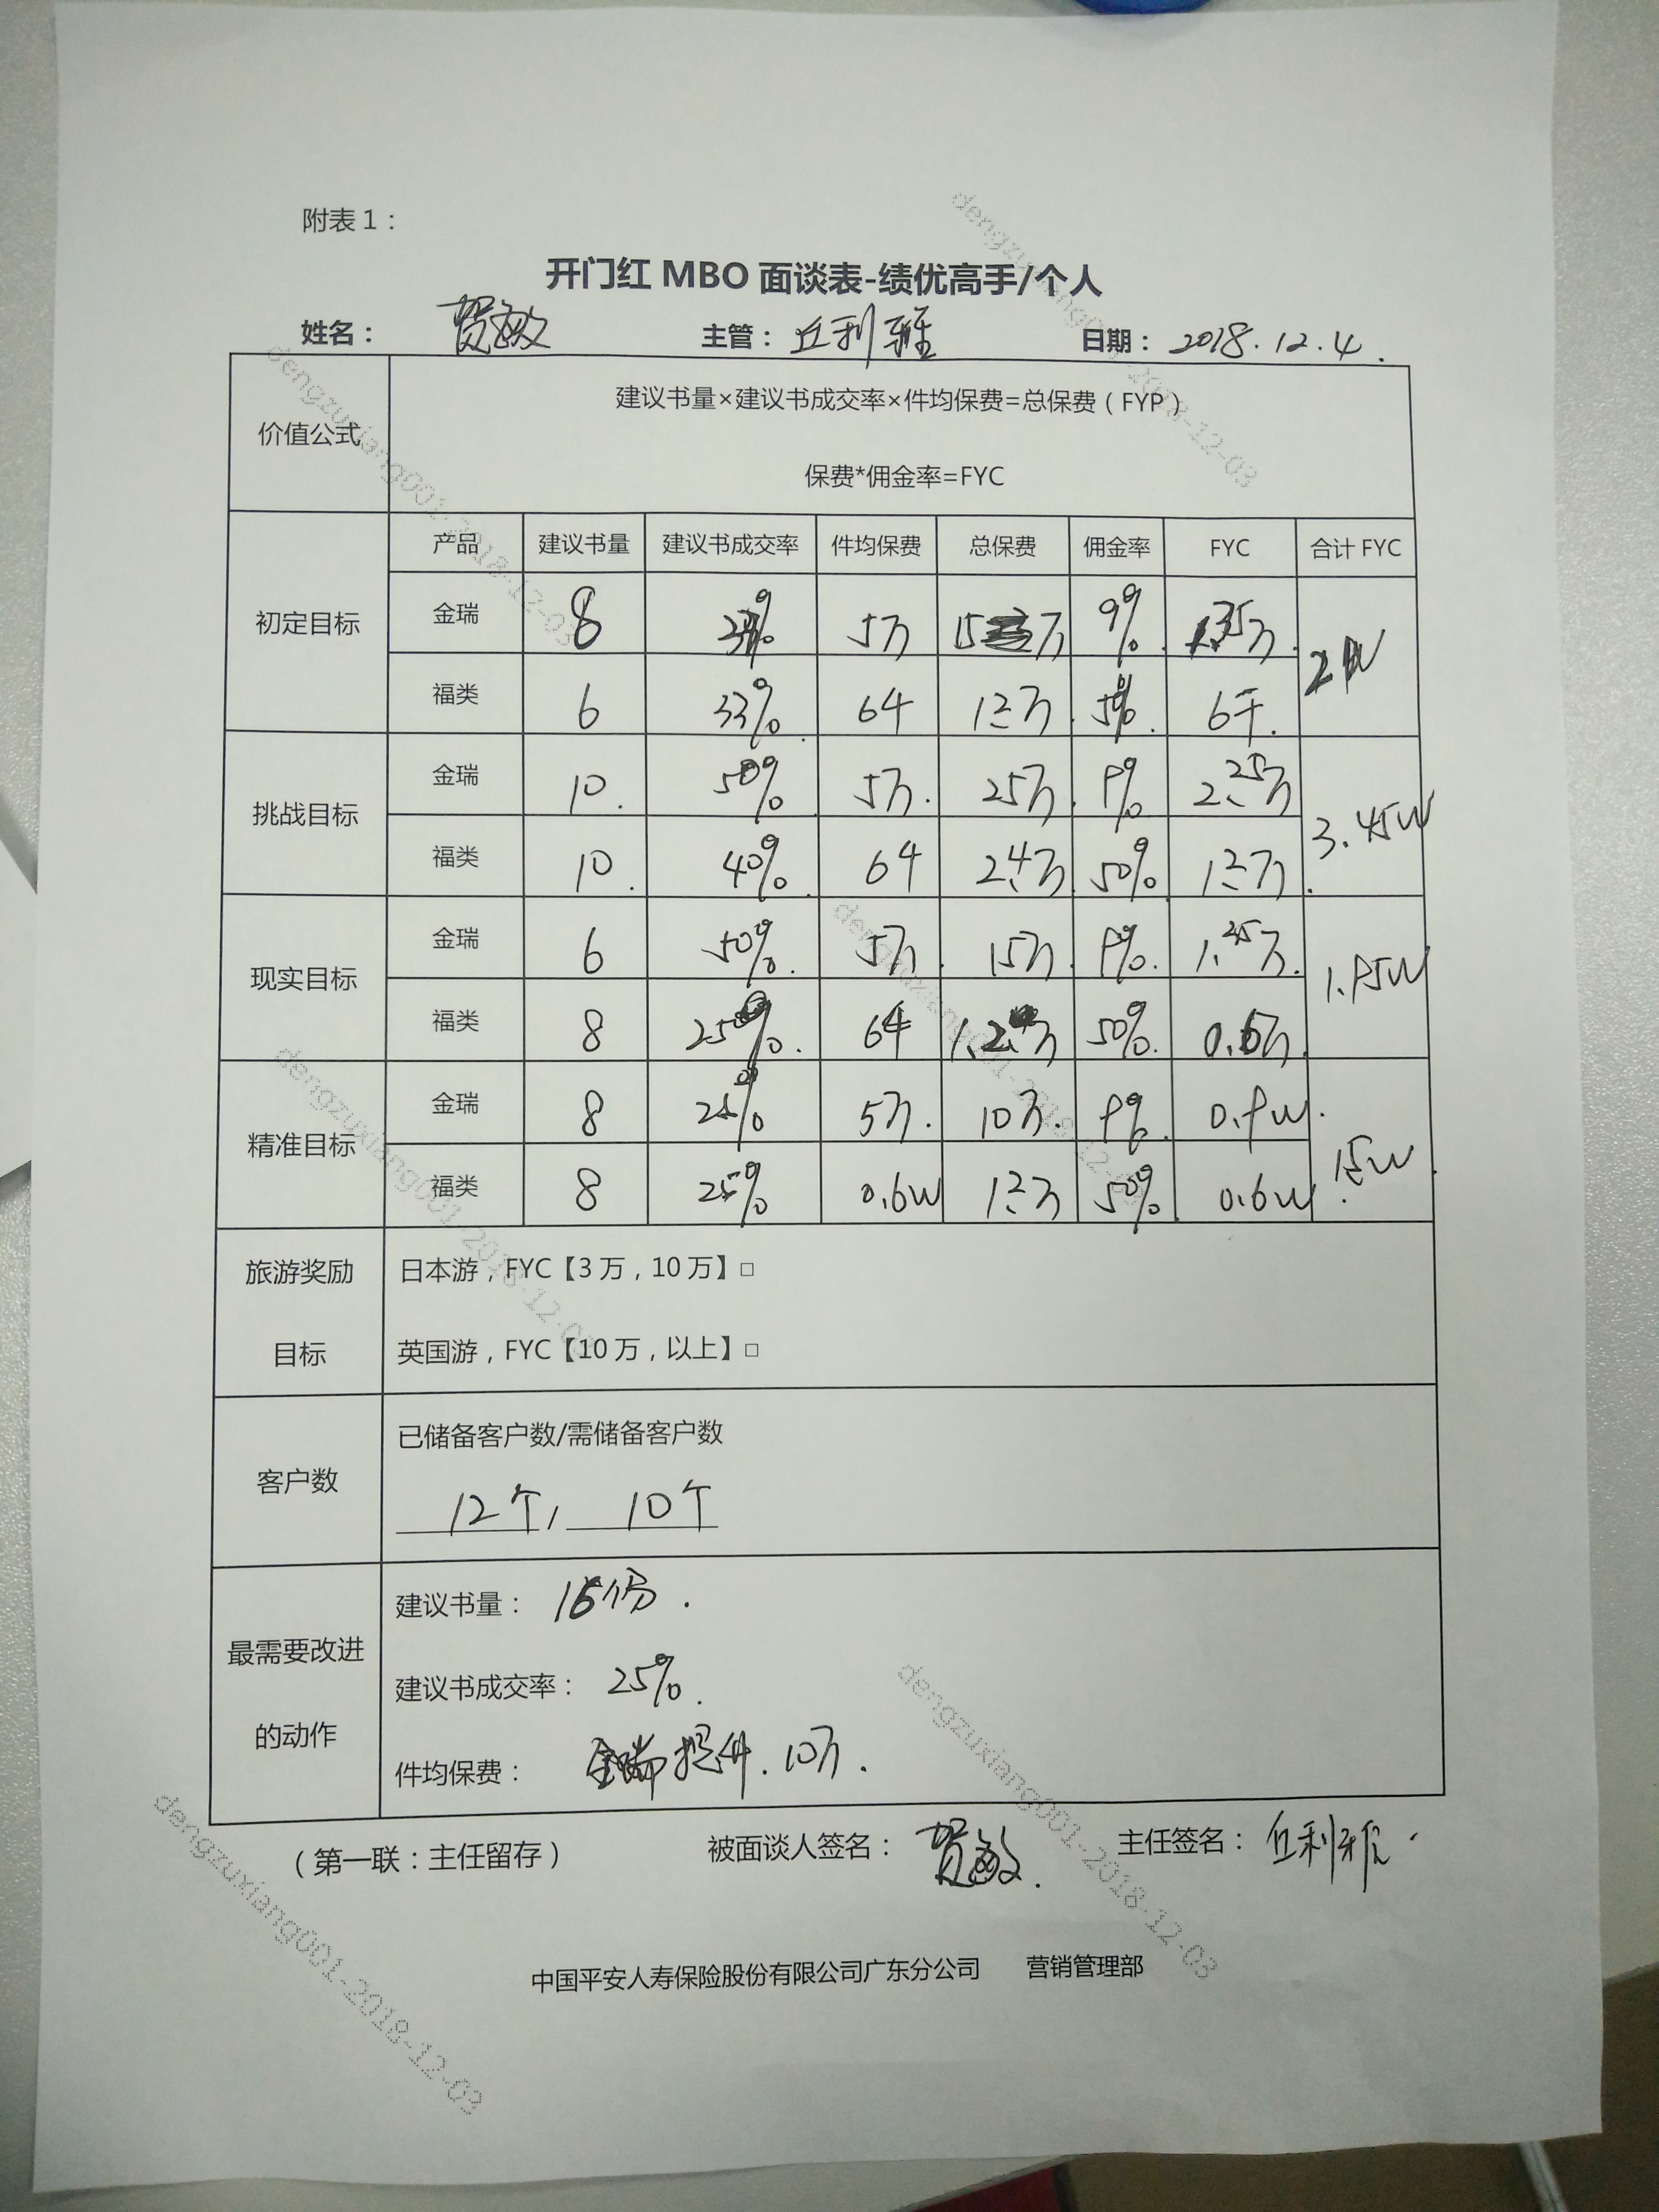 附表1：
开门红 MBO 面谈表-绩优高手/个人
姓名： 贺敏 主管：丘利雅 日期：2018.12.4.
价值公式
建议书量×建议书成交率×件均保费=总保费（FYP）
保费*佣金率=FYC
产品 建议书量 建议书成交率 件均保费 总保费 佣金率 FYC 合计 FYC
初定目标
金瑞 8 5万 15万 9% 1.35万
福类 6 33% 6千 1.2万 50% 6千.
挑战目标 3.45W
金瑞 10. 50% 5万. 25万 9% 2.25万
福类 10. 40% 6千 2.4万 50% 1.2万
现实目标 1.95W
金瑞 6 50% 5万 15万 9% 1.35万.
福类 8 25% 6千 1.2万 50% 0.6万
精准目标 1.5W
金瑞 8 25% 5万. 10万. 9% 0.9W.
福类 8 25% 0.6W 1.2万 50% 0.6W
旅游奖励
目标
日本游，FYC【3 万，10 万】□
英国游，FYC【10 万，以上】□
客户数
已储备客户数/需储备客户数
12个/ 10个
最需要改进
的动作
建议书量： 16份.
建议书成交率： 25%.
件均保费： 金瑞提升.10万.
（第一联：主任留存） 被面谈人签名： 贺敏. 主任签名： 丘利雅.
中国平安人寿保险股份有限公司广东分公司 营销管理部
dengzuxiang001-2018-12-03
dengzuxiang001-2018-12-03
dengzuxiang001-2018-12-03
dengzuxiang001-2018-12-03
dengzuxiang001-2018-12-03
dengzuxiang001-2018-12-03